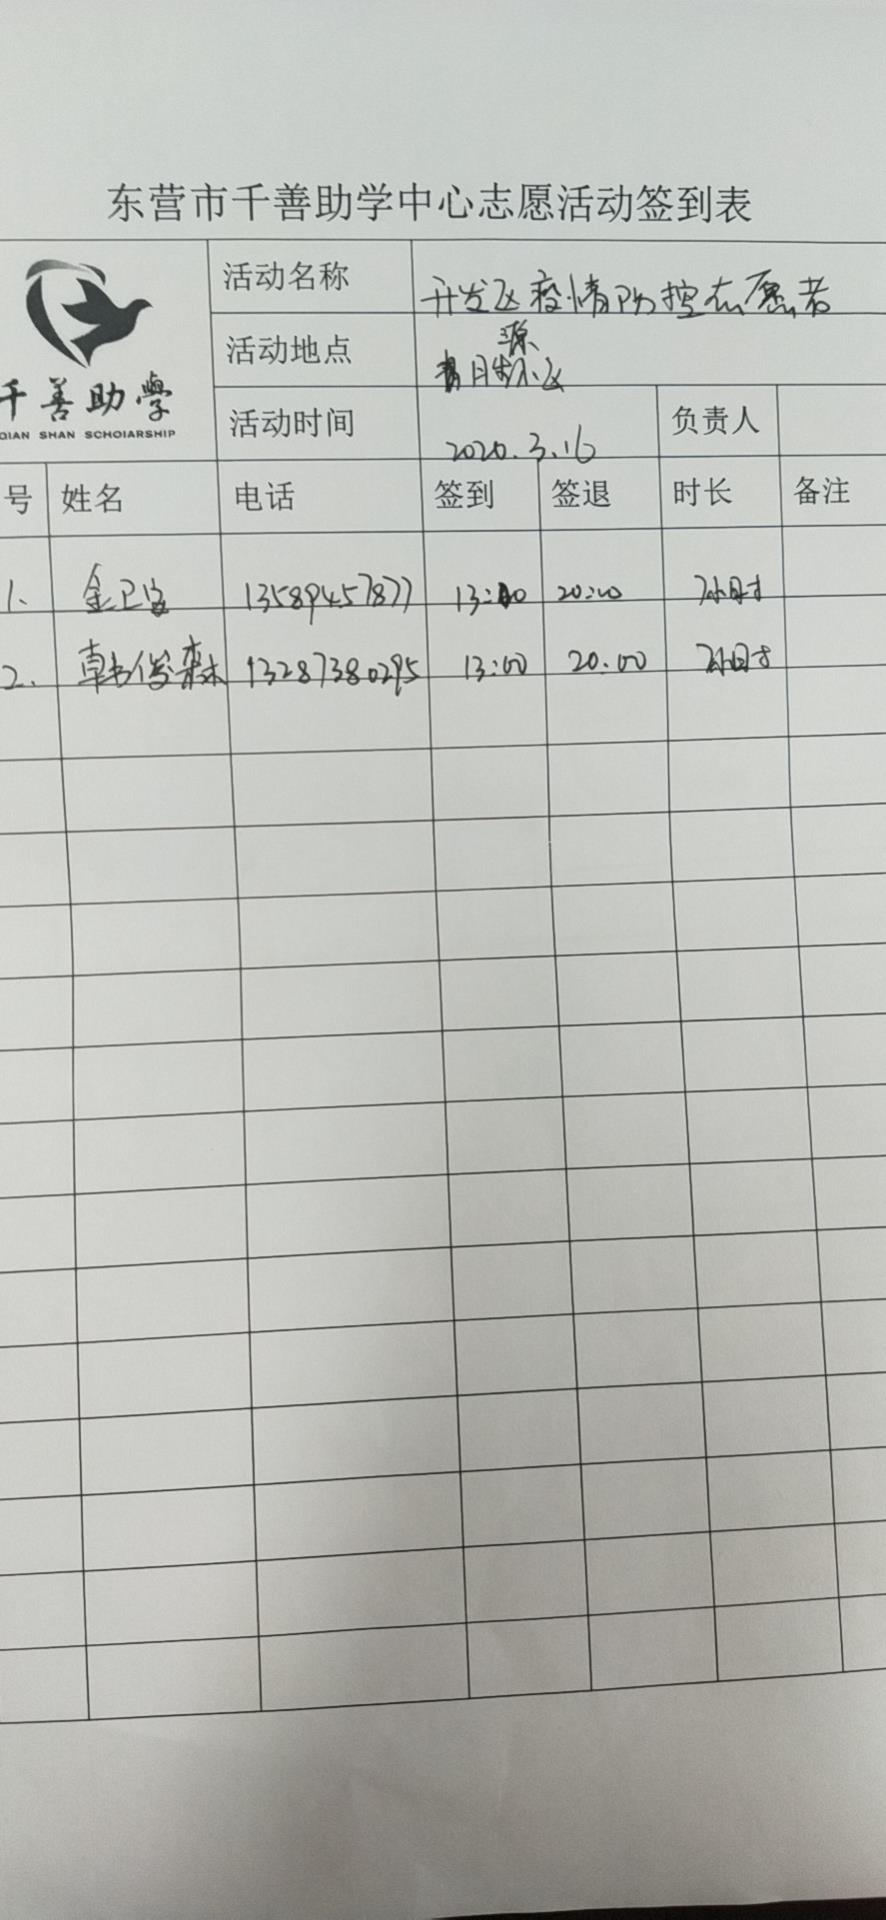 东营市千善助学中心志愿活动签到表
千善助學
QIAN SHAN SCHOIARSHIP
活动名称 开发区疫情防控志愿者
活动地点 源 小区
活动时间 2020.3.16 负责人
号 姓名 电话 签到 签退 时长 备注
1、 金卫宝 13589457877 13:00 20:00 7小时
2、 韩俊霖 13287380295 13:00 20:00 7小时